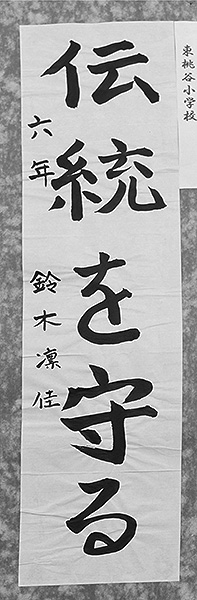 東桃谷小学校
伝統を守る
六年 鈴木凜佳